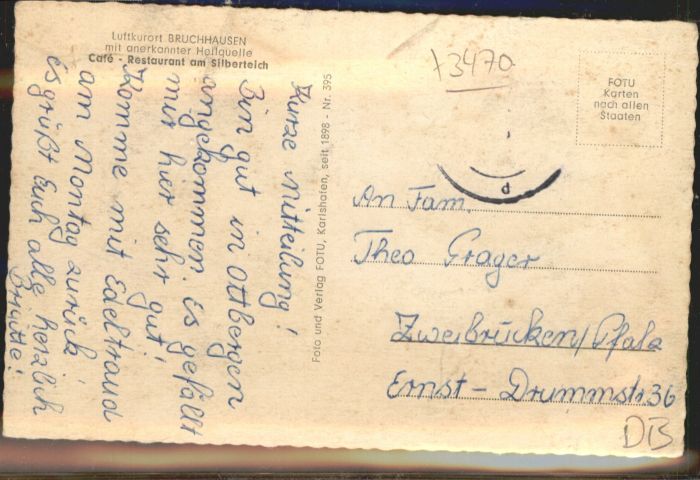 Luftkurort BRUCHHAUSEN
mit anerkannter Heilquelle
Café - Restaurant am Silberteich
Kurze Mitteilung!
Bin gut in Ottbergen
angekommen. Es gefällt
mir hier sehr gut!
Komme mit Edeltraud
am Montag zurück!
Es grüßt Euch alle herzlich
Brigitte!
Foto und Verlag FOTU, Karlshafen, seit 1898 - Nr. 395
13470
FOTU
Karten
nach allen
Staaten
An Fam.
Theo Prager
Zweibrücken/Pfalz
Ernst-Drummstr. 36
DB